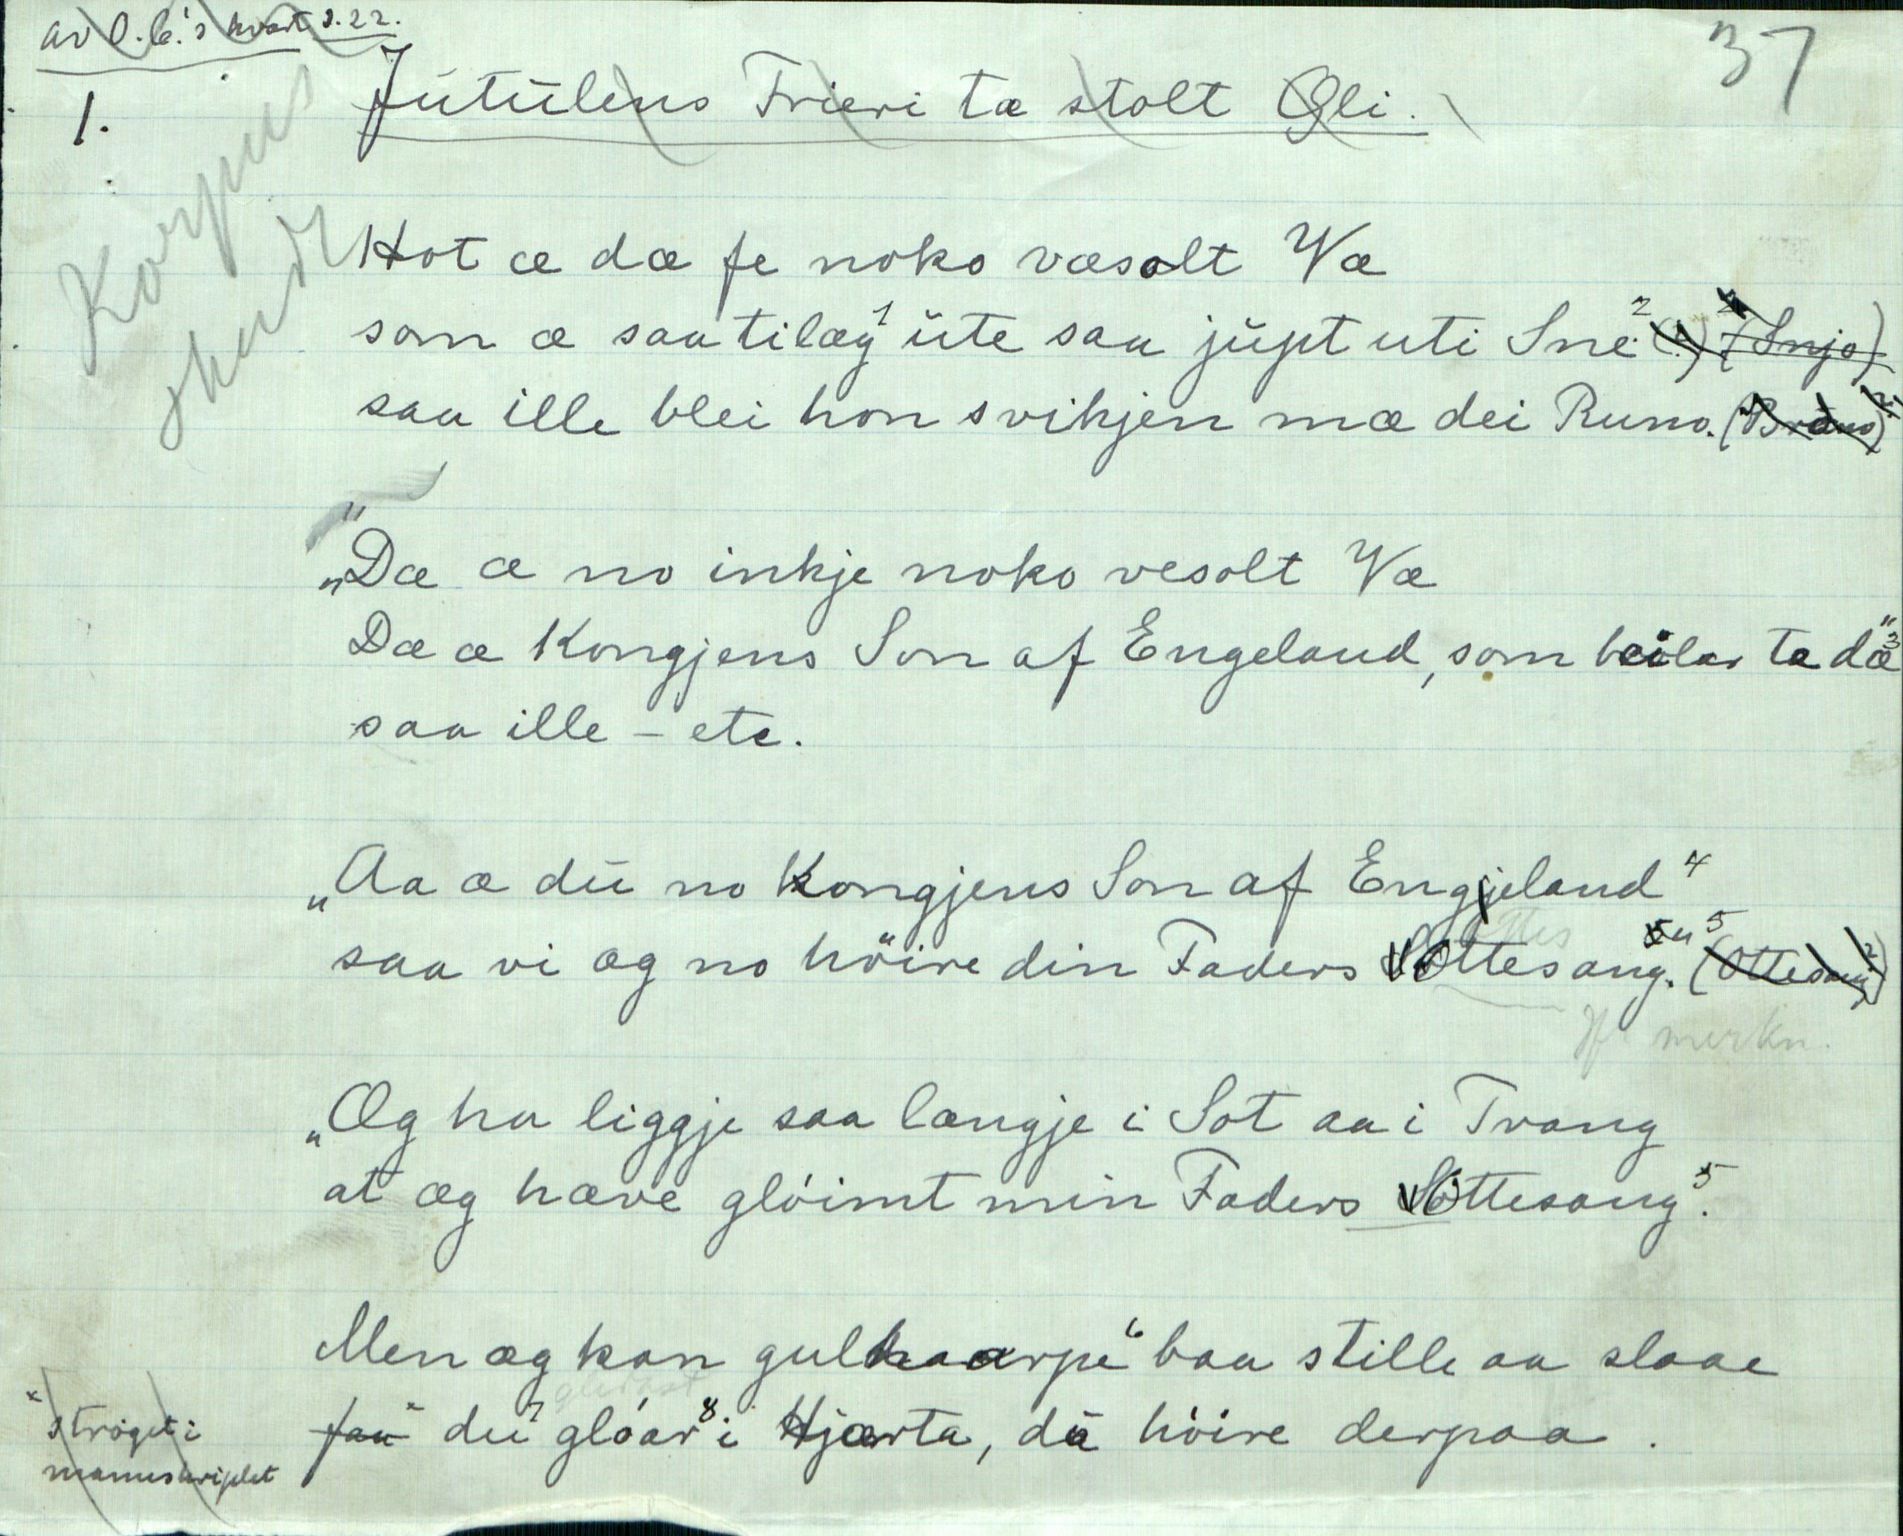 av O.C.'s kvart s. 22.
37
1. Jutulens Frieri tæ stolt Oli.
Korpus
Hot æ dæ fe noko væsolt Væ
som æ saa tilæg¹ ute saa jupt uti Sne² (!) (Snjo)
saa ille blei hon svikjen mæ dei Runo. (Bråno)
"Dæ æ no inkje noko vesolt Væ
Dæ æ Kongjens Son af Engeland, som beilar tæ dæ"³
saa ille – etc.
"Aa æ du no Kongjens Son af Engjeland⁴
saa vi æg no höire din Faders Sottesang."⁵ (Ottesang)
jfr merkn.
"Æg ha liggje saa længje i Sot aa i Trang
at æg hæve glöimt min Faders Sottesang⁵.
Men æg kan gulhaarpe⁶ baa stille aa slaae
faa* du⁷ glóar⁸ i Hjærta, du höire derpaa.
* ströget i
manuskriptet